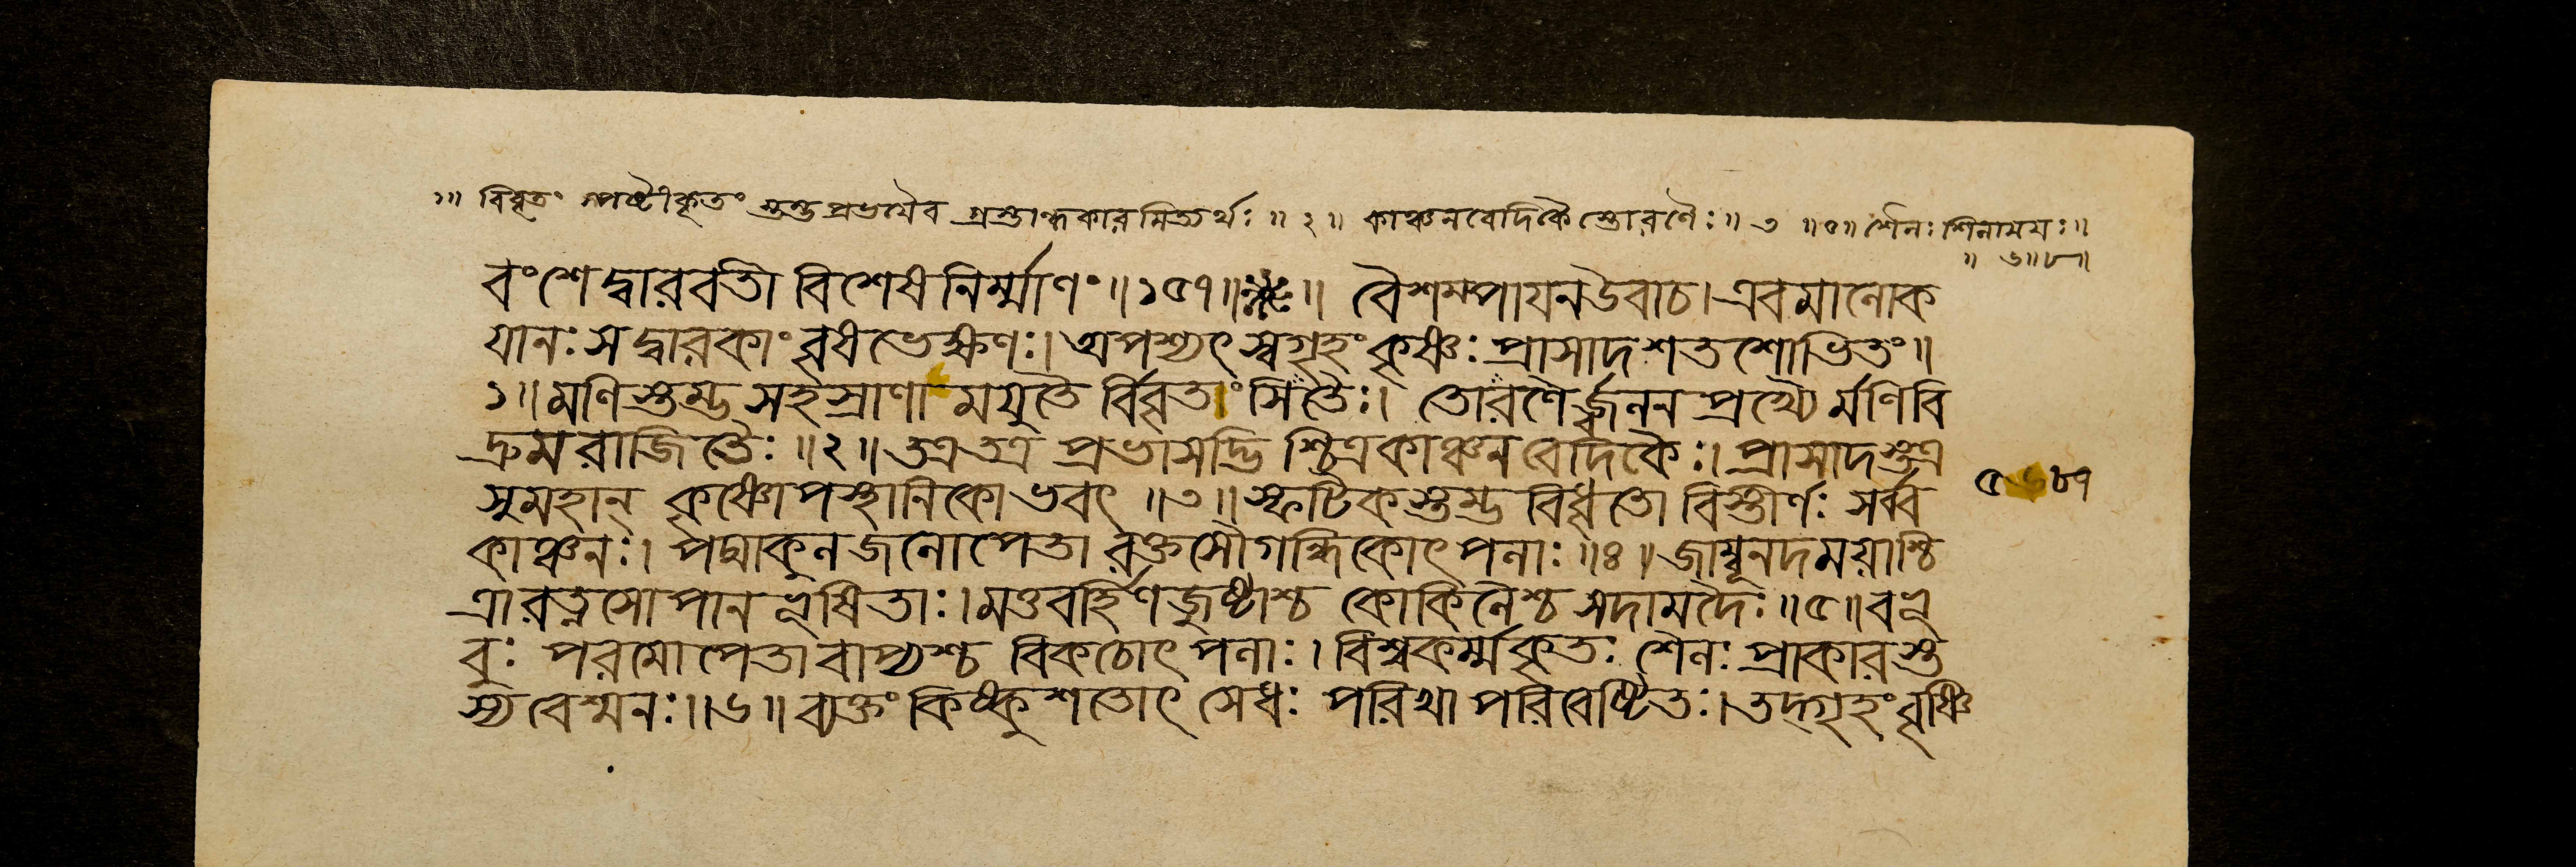 ১॥ বিবৃতং স্পষ্টীকৃতং স্তম্ভপ্রভযৈব গ্রস্তান্ধকারমিত্যর্থঃ ॥ ২ ॥ কাঞ্চনবেদিকৈস্তোরণৈঃ ॥ ৩ ॥ ৫ ॥ শৈলঃ শিলাময়ঃ ॥
॥ ৬ ॥ ৮ ॥
বংশে দ্বারবতী বিশেষনির্ম্মাণং ॥ ১৫৭ ॥ ॥ বৈশম্পাযন উবাচ । এবমালোক
যানঃ স দ্বারকাং বৃষভেক্ষণঃ । অপশ্যৎ স্বগৃহং কৃষ্ণঃ প্রাসাদশতশোভিতং ॥
১ ॥ মণিস্তম্ভসহস্রাণা মযুতৈ র্বিবৃতাং সিতৈঃ । তোরণৈর্জ্জ্বলনপ্রখ্যৈ র্মণিবি
দ্রুমরাজিতৈঃ ॥ ২ ॥ তত্র তত্র প্রভাসদ্ভি শ্চিত্রকাঞ্চনবেদিকৈঃ । প্রাসাদস্তত্র
সুমহান্ কৃষ্ণোপস্থানিকোভবৎ ॥ ৩ ॥ স্ফটিকস্তম্ভবিধৃতো বিস্তীর্ণঃ সর্ব্ব
কাঞ্চনঃ । পদ্মাকুলজলোপেতা রক্তসৌগন্ধিকোৎপলাঃ ॥ ৪ ॥ জাম্বূনদময়াশ্চি
ত্রা রত্নসোপানভূষিতাঃ । মত্তবর্হিণজুষ্টাশ্চ কোকিলৈশ্চ সদামদৈঃ ॥ ৫ ॥ বভূ
বুঃ পরমোপেতা বাপ্যশ্চ বিকচোৎপলাঃ । বিশ্বকর্ম্মকৃতঃ শৈলঃ প্রাকারস্ত
স্য বেশ্মনঃ ॥ ৬ ॥ ব্যক্তং কিষ্কুশতোৎসেধঃ পরিখাপরিবেষ্টিতঃ । তদ্গৃহং বৃষ্ণি
৫৬৮৭